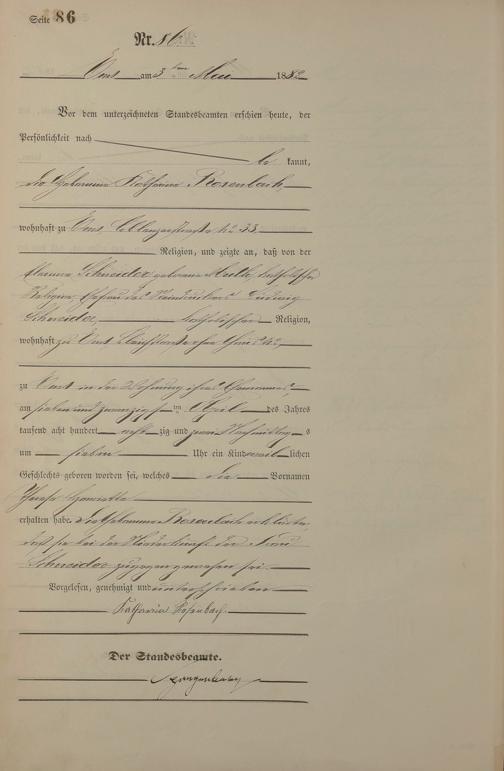 Seite 86
Nr. 86.
Ems am 3ten Mai 1882
Vor dem unterzeichneten Standesbeamten erschien heute, der
Persönlichkeit nach
be kannt,
die Hebamme Katharina Rosenbach,
wohnhaft zu Ems, No 33,
Religion, und zeigte an, daß von der
Schneider geborene Muth, katholischer
Religion, Ehefrau des Ludwig
Schneider, katholischer Religion,
wohnhaft zu Ems
zu Ems in der Wohnung ihres Ehemannes,
am sieben und zwanzigsten April des Jahres
tausend acht hundert acht zig und zwei Nachmittag s
um sieben Uhr ein Kind weib lichen
Geschlechts geboren worden sei, welches die Vornamen
erhalten habe. Die Hebamme Rosenbach erklärte,
daß sie bei der Niederkunft der Frau
Schneider zugegen gewesen sei.
Vorgelesen, genehmigt und unterschrieben
Katharina Rosenbach
Der Standesbeamte.